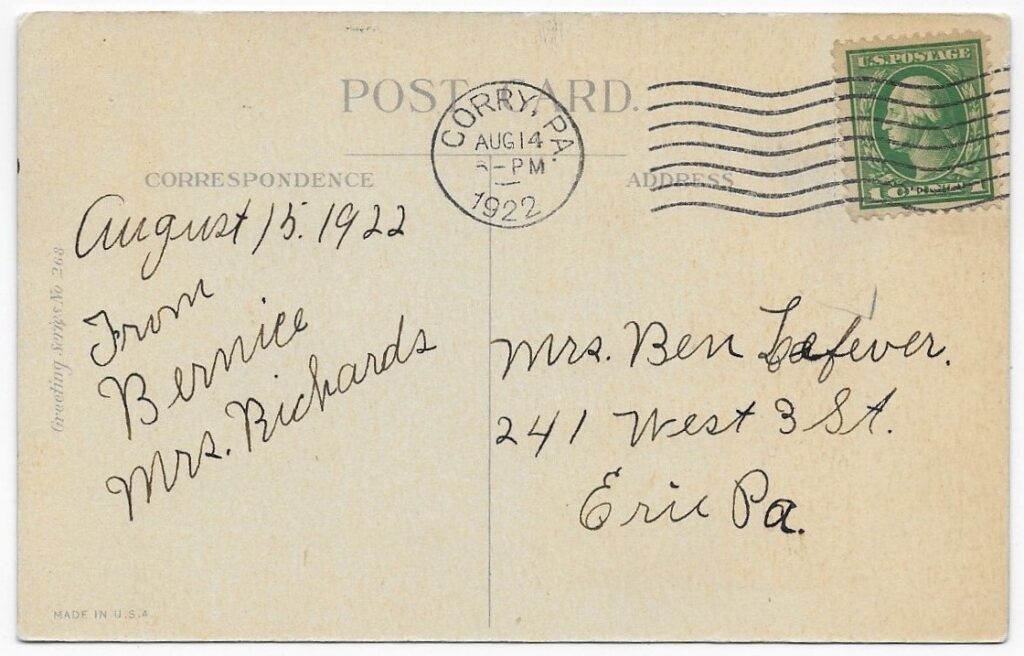 POST CARD.
CORRY, PA.
AUG 14
-PM
1922
U.S. POSTAGE
CORRESPONDENCE
ADDRESS
August 15. 1922
From
Bernice
Mrs. Richards
Mrs. Ben Lefever.
241 West 3 St.
Erie Pa.
Greeting Series No 263
MADE IN U.S.A